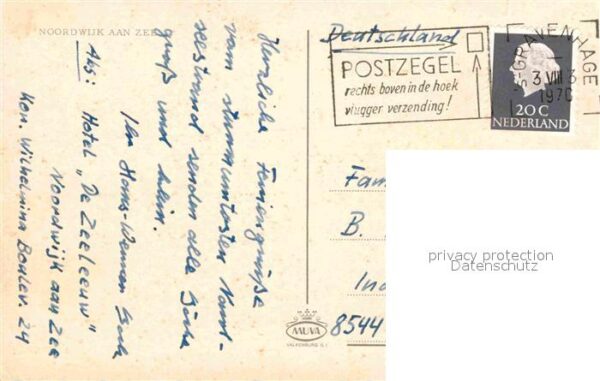 NOORDWIJK AAN ZEE
Herzliche Feriengrüße
vom sturmumtosten Nord-
seestrand senden alle
groß und klein.
Ihr Hans-Werner
Abs: Hotel "De Zeeleeuw"
Noordwijk aan Zee
Kon. Wilhelmina Boulev. 24
Deutschland
POSTZEGEL
rechts boven in de hoek
vlugger verzending!
'S-GRAVENHAGE
3 VIII 3
1970
20 C
NEDERLAND
Fam
B.
Ind
8544
privacy protection
Datenschutz
MUVA
VALKENBURG (L.)